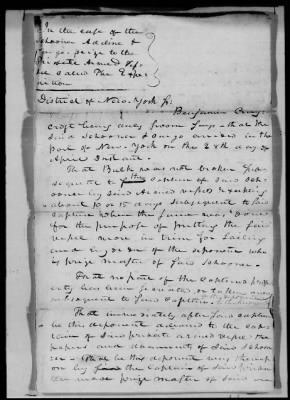 In the case of the
Schooner Adeline &
Cargo prize to the
Private Armed Ves-
sel called The Expe-
dition
District of New-York ss.
Benjamin
croft being duly sworn says that the
said schooner & cargo arrived in the
port of New-York on the 28th day of
April Instant.
That Bulk was not broken sub-
sequent to the capture of said Scho-
oner by said Armed vessel excepting
about 10 or 15 days subsequent to said
capture when the same was done
for the purpose of putting the said
vessel more in trim for sailing
and by order of the deponent who
is prize master of said schooner.
That no part of the captured prop-
erty has been or taken away
subsequent to said Capture
That immediately after said capture
he this deponent
of said private armed vessel the
papers and documents of said schoo-
ner. That he this deponent was
by the captain of said private
prize master of said